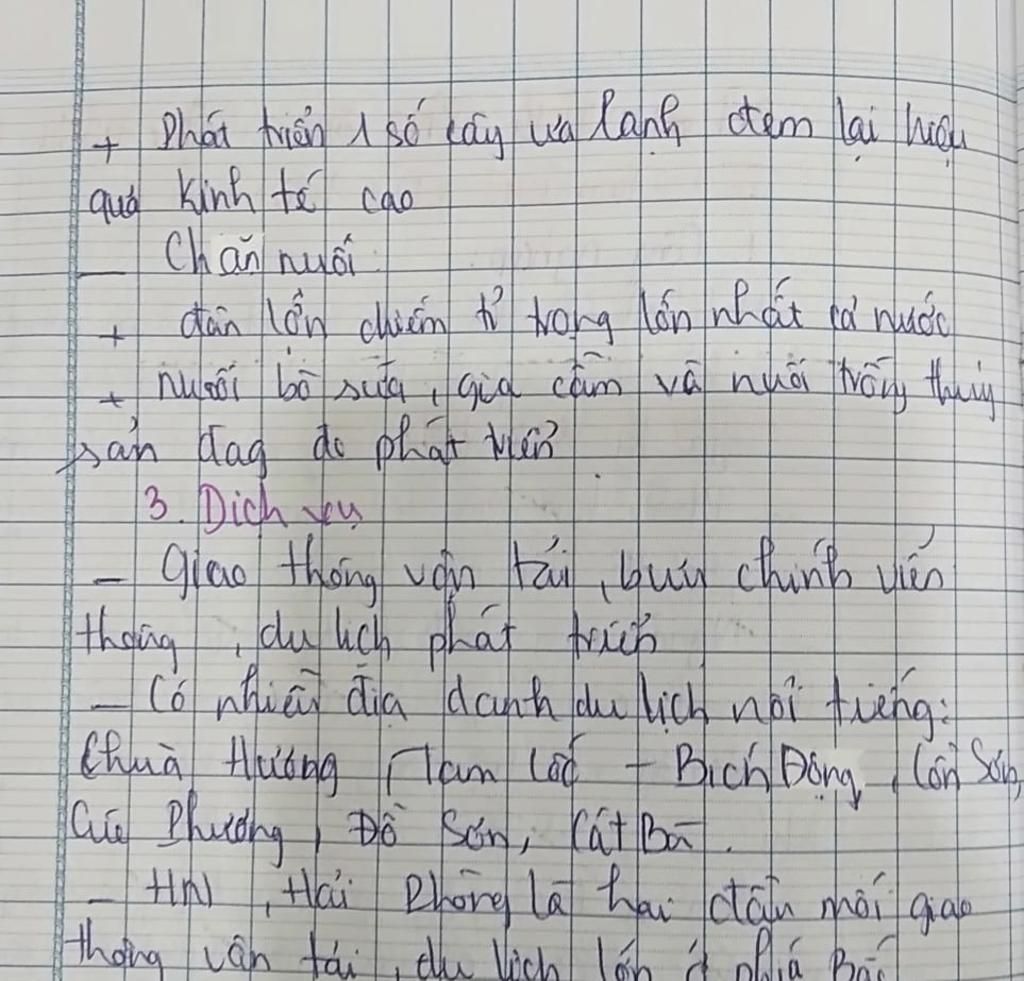 + Phát triển 1 số cây ưa lạnh đem lại hiệu
quả kinh tế cao
— Chăn nuôi
+ đàn lợn chiếm tỉ trọng lớn nhất cả nước
+ nuôi bò sữa, gia cầm và nuôi trồng thuỷ
sản đag dc phát triển
3. Dịch vụ
— Giao thông vận tải, bưu chính viễn
thông, du lịch phát triển
— Có nhiều địa danh du lịch nổi tiếng:
Chùa Hương, Tam Cốc - Bích Động, Côn Sơn,
Cúc Phương, Đồ Sơn, Cát Bà.
— HN, Hải Phòng là hai đầu mối giao
thông vận tải, du lịch lớn ở phía Bắc